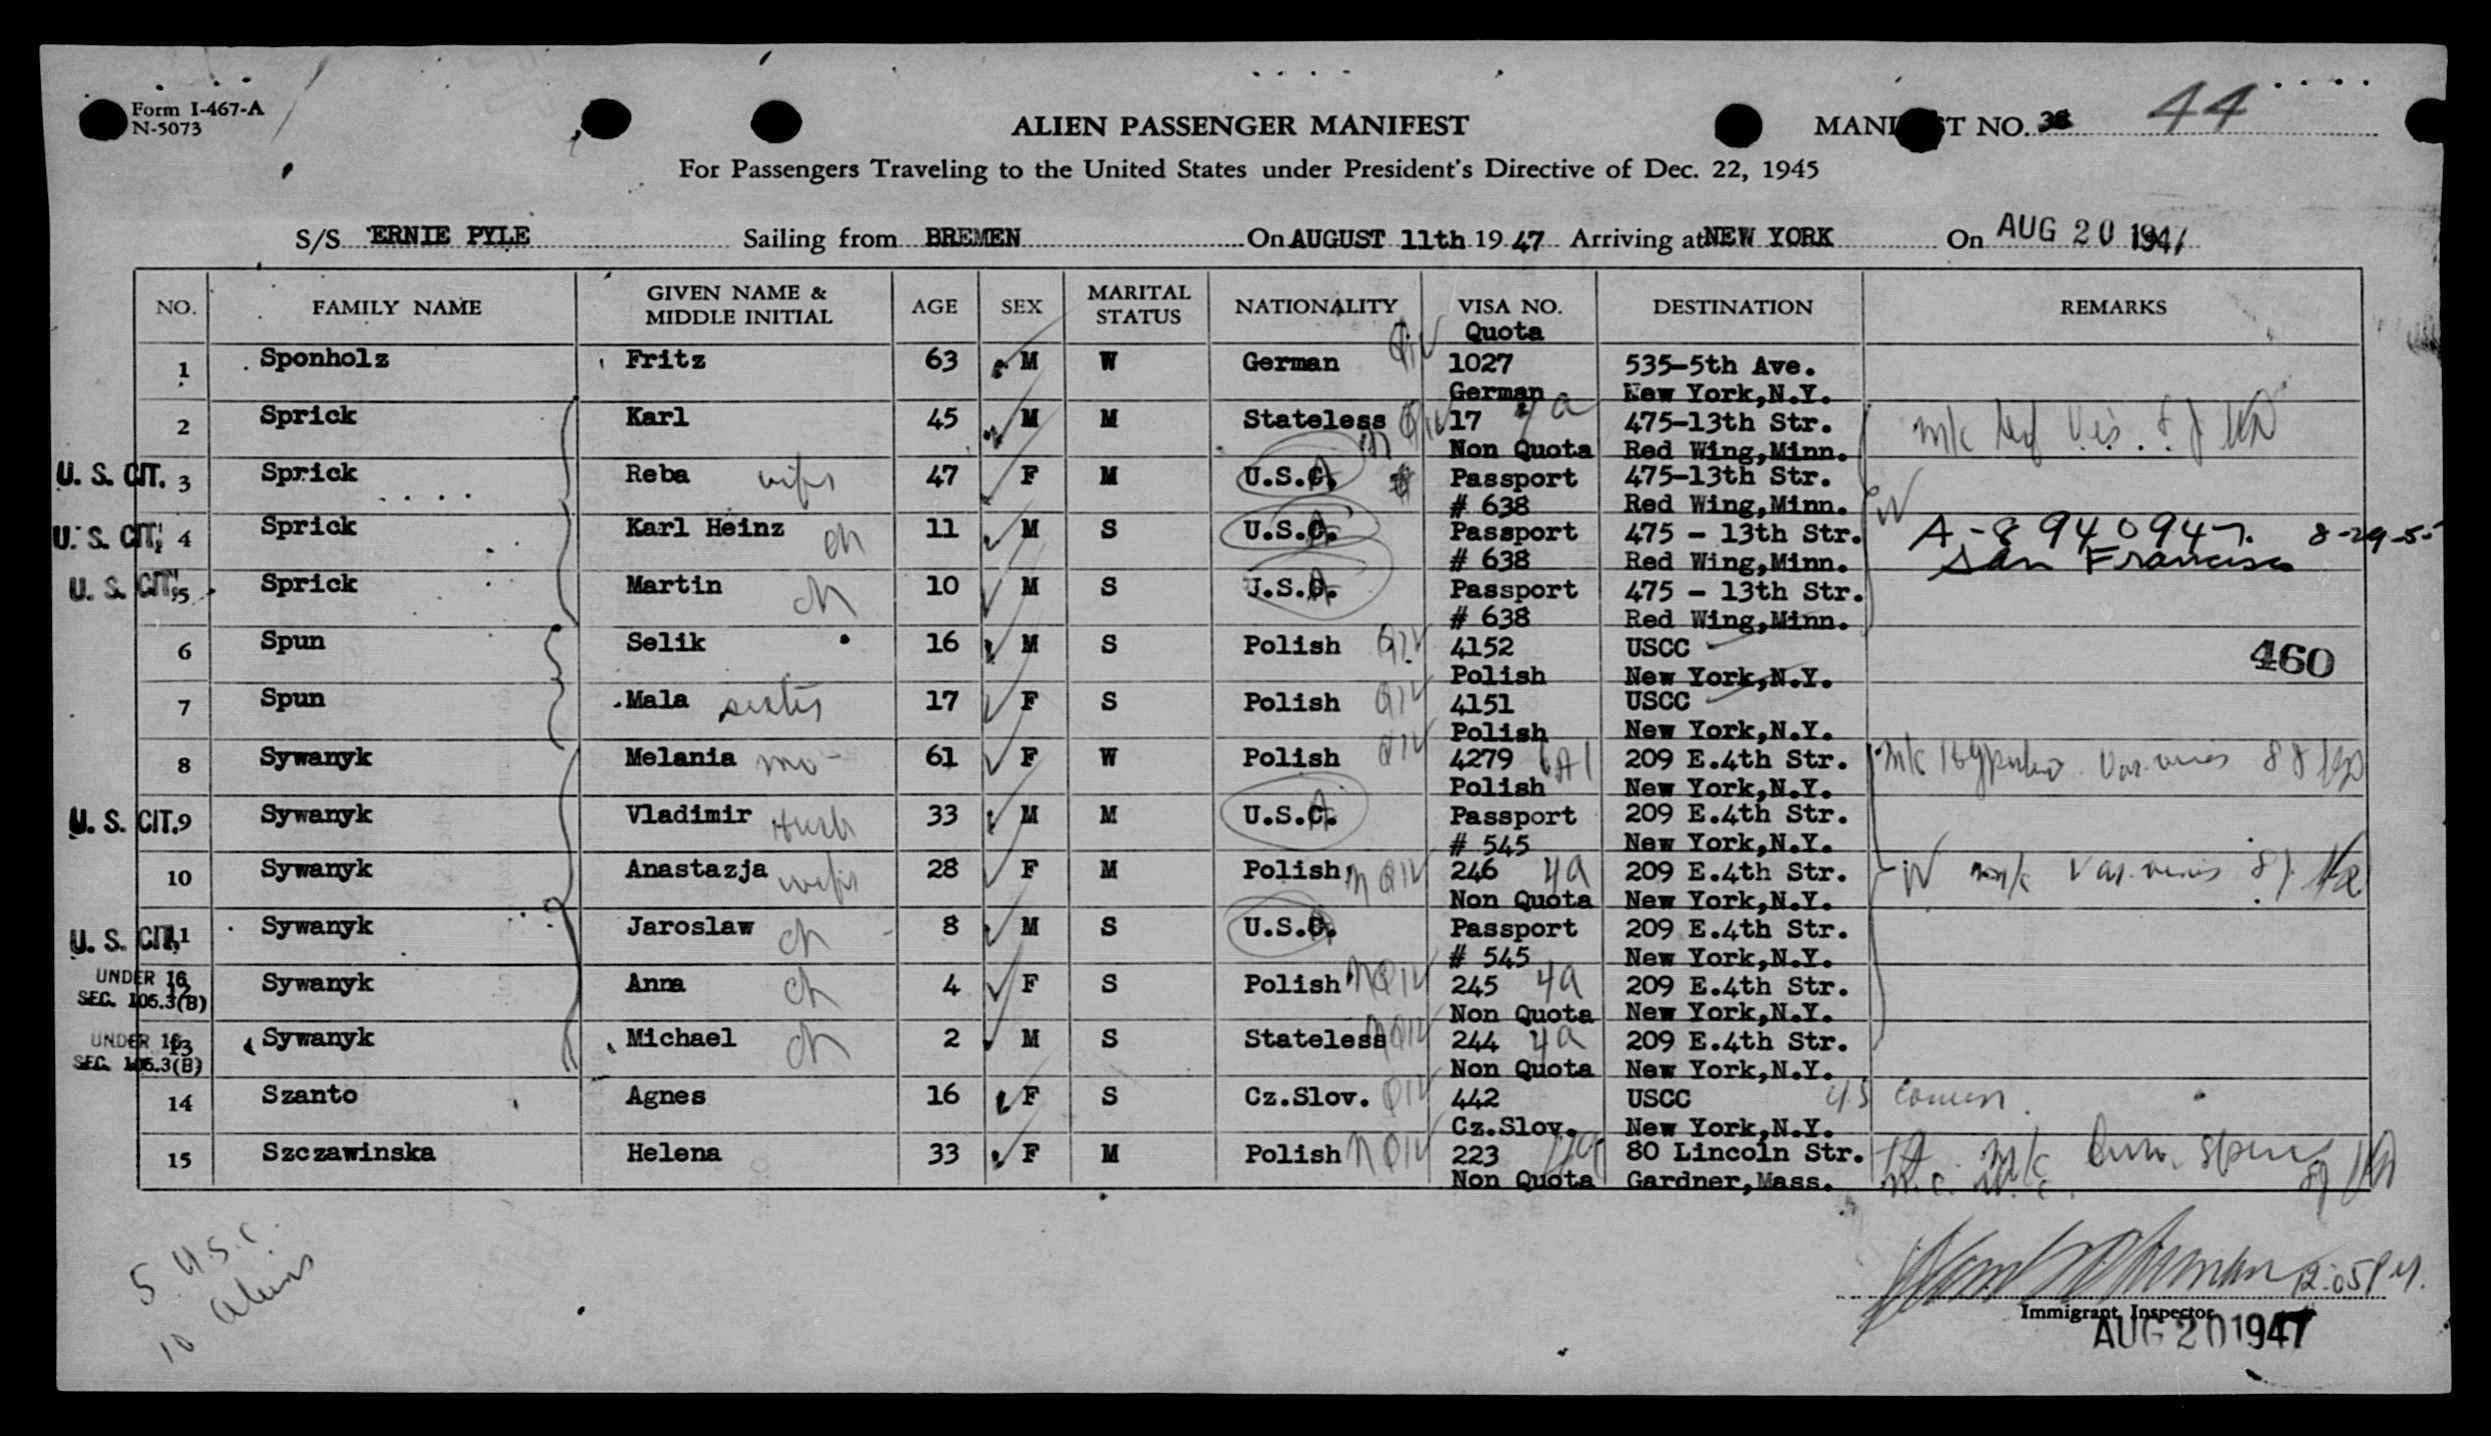 Form I-467-A
N-5073
ALIEN PASSENGER MANIFEST
MANIFEST NO. 44
For Passengers Traveling to the United States under President's Directive of Dec. 22, 1945
S/S ERNIE PYLE Sailing from BREMEN On AUGUST 11th 19 47 Arriving at NEW YORK On AUG 20 1947
NO. FAMILY NAME GIVEN NAME & MIDDLE INITIAL AGE SEX MARITAL STATUS NATIONALITY VISA NO. DESTINATION REMARKS
Quota
1 Sponholz Fritz 63 M W German 1027 535-5th Ave.
German New York,N.Y.
2 Sprick Karl 45 M M Stateless 17 4a 475-13th Str.
Non Quota Red Wing,Minn.
U. S. CIT. 3 Sprick Reba wife 47 F M U.S.C. Passport 475-13th Str.
# 638 Red Wing,Minn.
U. S. CIT. 4 Sprick Karl Heinz ch 11 M S U.S.C. Passport 475 - 13th Str. A-8940947. 8-29-55
# 638 Red Wing,Minn. San Francisco
U. S. CIT. 5 Sprick Martin ch 10 M S U.S.C. Passport 475 - 13th Str.
# 638 Red Wing,Minn.
6 Spun Selik 16 M S Polish QIV 4152 USCC 460
Polish New York,N.Y.
7 Spun Mala sister 17 F S Polish QIV 4151 USCC
Polish New York,N.Y.
8 Sywanyk Melania mo 61 F W Polish QIV 4279 209 E.4th Str.
Polish New York,N.Y.
U. S. CIT. 9 Sywanyk Vladimir Husb 33 M M U.S.C. Passport 209 E.4th Str.
# 545 New York,N.Y.
10 Sywanyk Anastazja wife 28 F M Polish NQIV 246 4a 209 E.4th Str.
Non Quota New York,N.Y.
U. S. CIT. 11 Sywanyk Jaroslaw ch 8 M S U.S.C. Passport 209 E.4th Str.
# 545 New York,N.Y.
UNDER 16 SEC. 105.3(B) 12 Sywanyk Anna ch 4 F S Polish NQIV 245 4a 209 E.4th Str.
Non Quota New York,N.Y.
UNDER 16 SEC. 105.3(B) 13 Sywanyk Michael ch 2 M S Stateless NQIV 244 4a 209 E.4th Str.
Non Quota New York,N.Y.
14 Szanto Agnes 16 F S Cz.Slov. QIV 442 USCC
Cz.Slov. New York,N.Y.
15 Szczawinska Helena 33 F M Polish NQIV 223 80 Lincoln Str.
Non Quota Gardner,Mass.
5 U.S.C.
10 aliens
12:05 PM.
Immigrant Inspector
AUG 20 1947